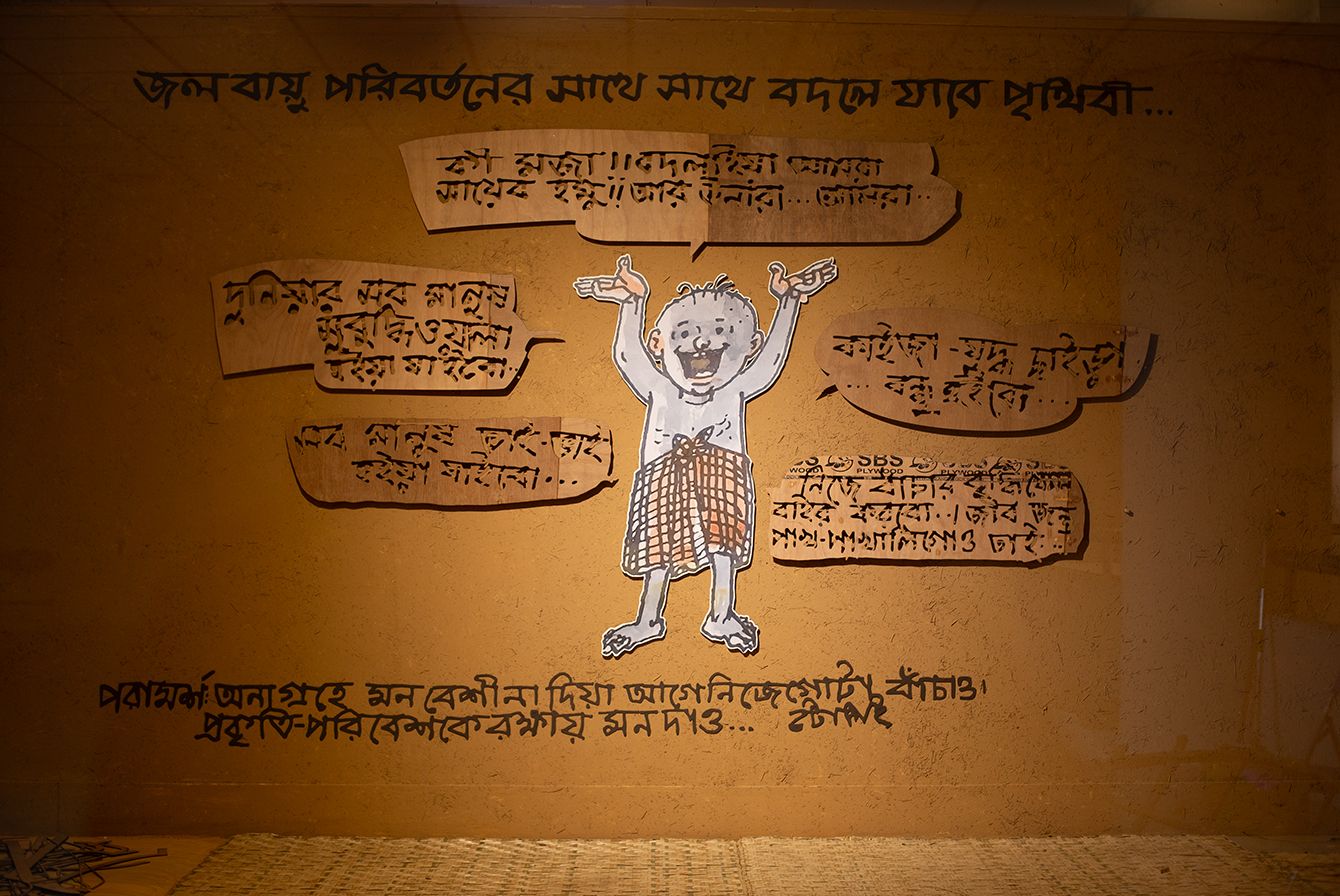 জলবায়ু পরিবর্তনের সাথে সাথে বদলে যাবে পৃথিবী...
কী মজা!! বদলাইয়া আমরা
সায়েব হমু!! আর উনারা... আমরা..
দুনিয়ার সব মানুষ
সুবুদ্ধিওয়ালা
হইয়া যাইবো..
কাইজা-যুদ্ধ ছাইড়া
... বন্ধু হইবো...
সব মানুষ ভাই-ভাই-
হইয়া যাইবো...
SBS SBS
PLYWOOD PLYWOOD
নিজে বাঁচার
বাইর করবো..। জীব জন্তু
ভাই..
পরামর্শ: অন্যগ্রহে মন বেশী না দিয়া আগে নিজেগোটা বাঁচাও।
প্রকৃতি-পরিবেশকে রক্ষায় মন দাও... টোকাই